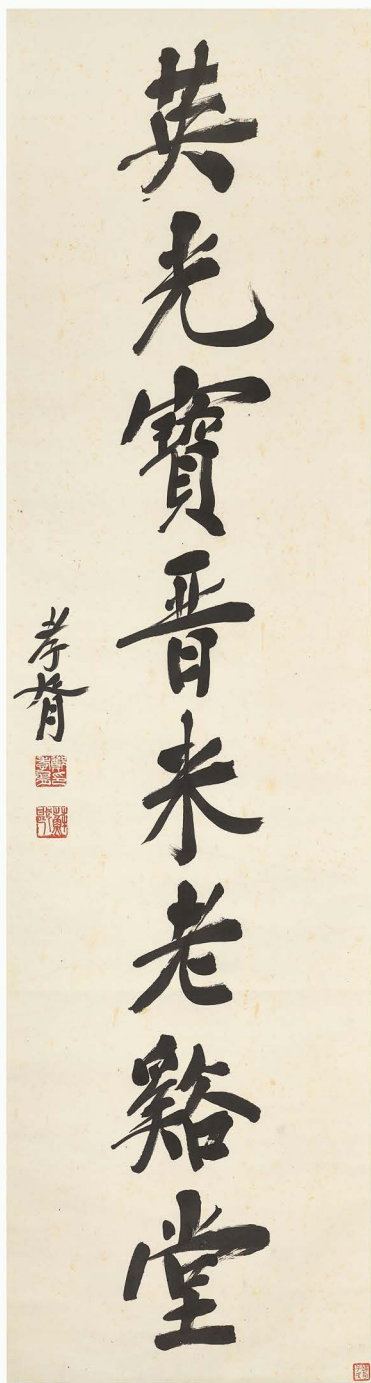 英光寶晋米老谿堂
孝胥